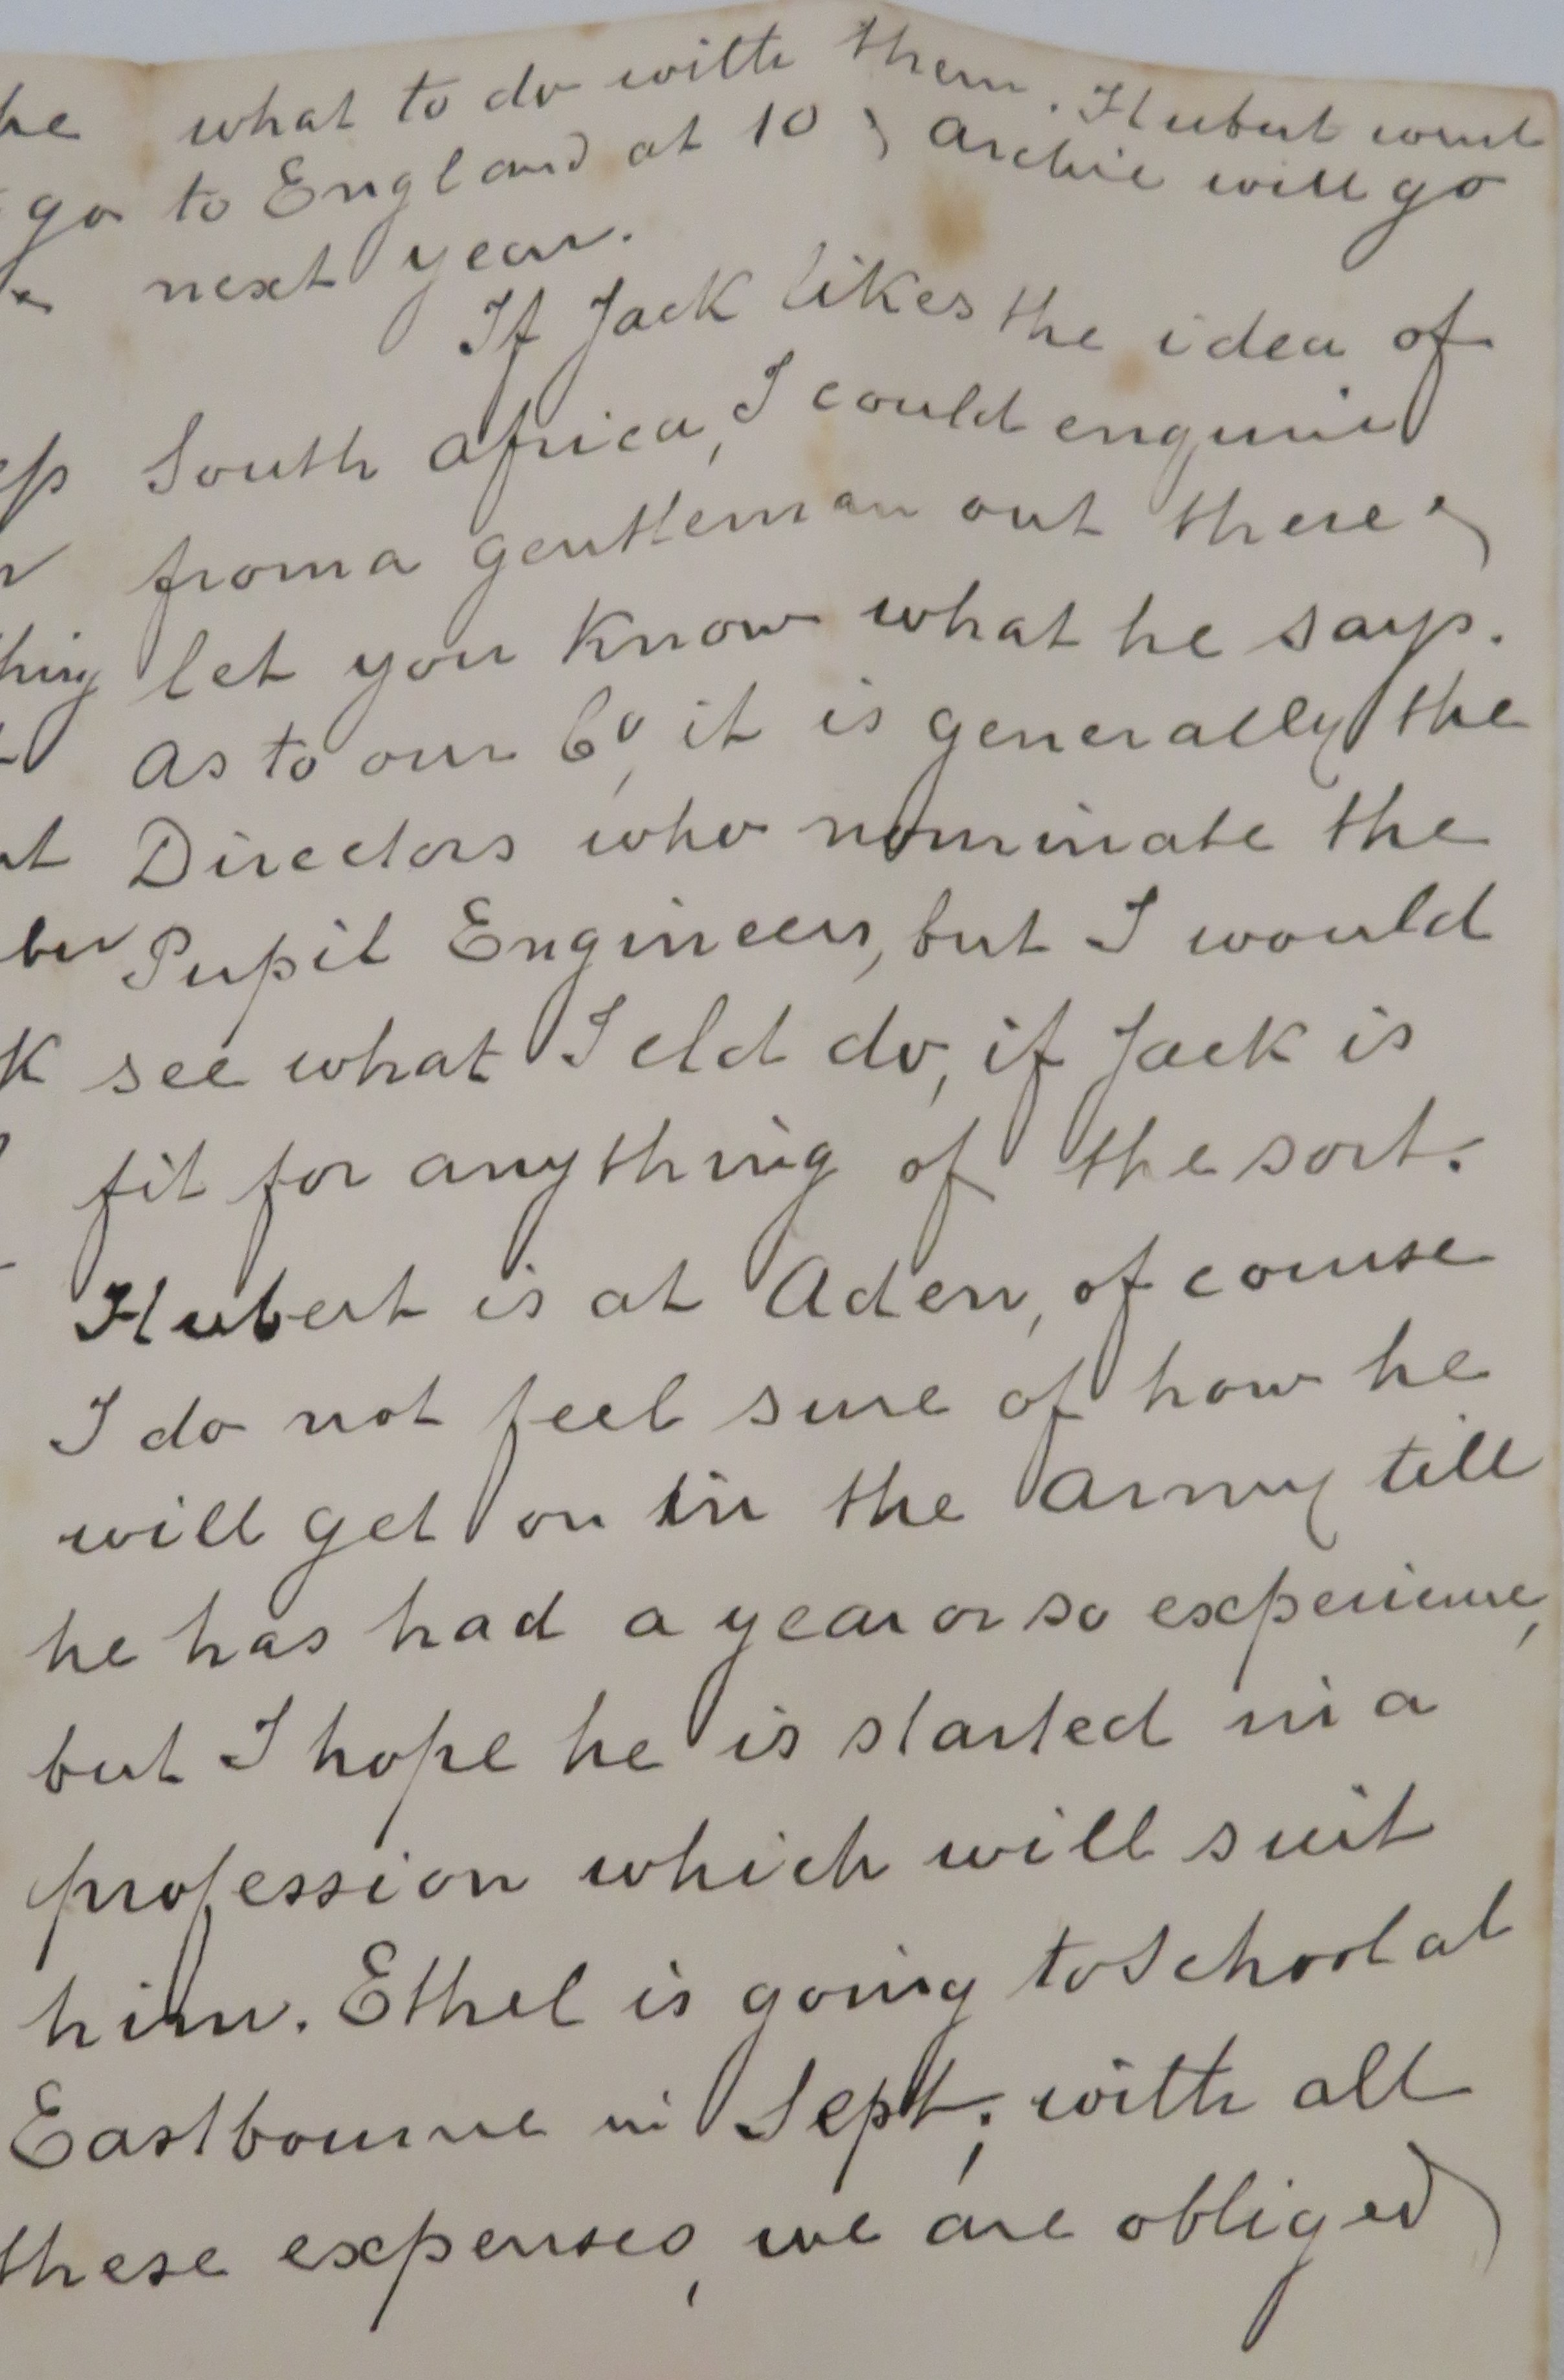 he what to do with them. Hubert went
go to England at 10, Archie will go
next year.
If Jack likes the idea of
South Africa, I could enquire
from a gentleman out there &
let you know what he says.
As to our Co, it is generally the
Directors who nominate the
Pupil Engineers, but I would
see what I cld do, if Jack is
fit for anything of the sort.
Hubert is at Aden, of course
I do not feel sure of how he
will get on in the Army till
he has had a year or so experience,
but I hope he is started in a
profession which will suit
him. Ethel is going to School at
Eastbourne in Sept; with all
these expenses, we are obliged